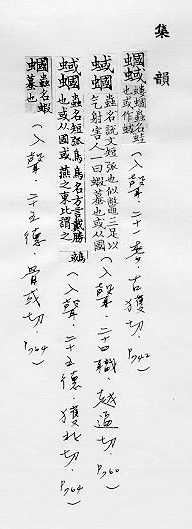 集韻
蟈䗁 螻蟈蟲名蛙也或作䗁
(入聲．二十一麥．古獲切．P742)
蜮蟈 蟲名說文短弧也似鼈三足以气射害人一曰蝦蟇也或从國
(入聲．二十四職．越逼切．P760)
蜮蟈 蟲名短弧鳥名方言戴勝也或从國或燕之東北謂之
鳥名方言戴勝
(入聲．二十五德．獲北切．P764)
蟈 蟲名蝦蟇也
(入聲．二十五德．骨或切．P764)